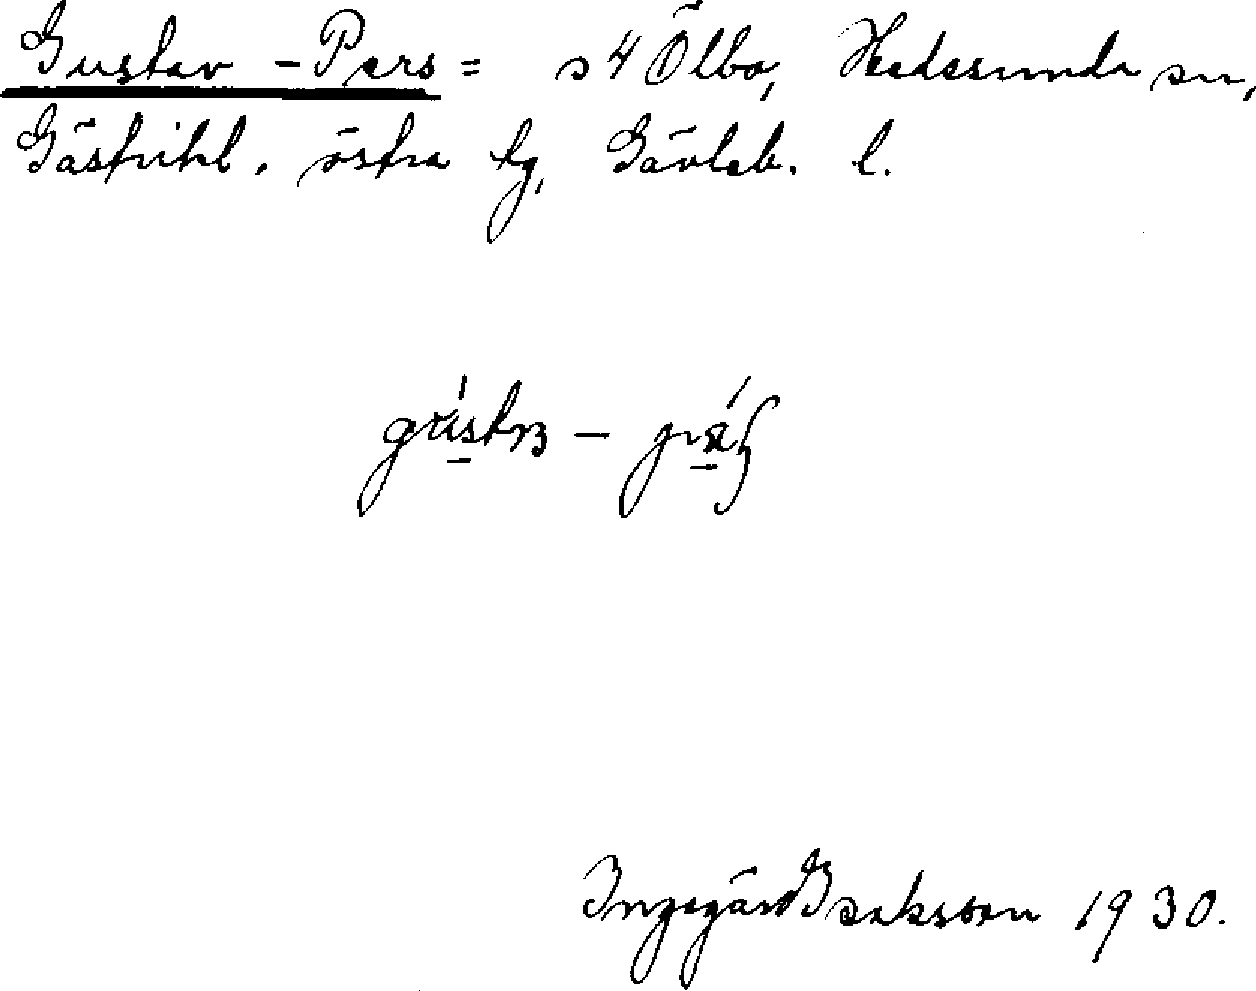 Gustav - Pers = s 4 Ölbo, Hedesunda sn,
Gästrikl. östra tg, Gävleb. l.
Ingegärd Isaksson 1930.